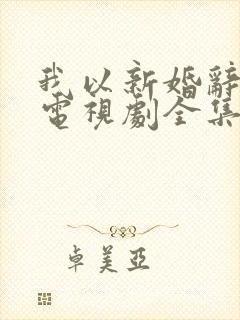 我以新婚辭
電視劇全集
卓美亞